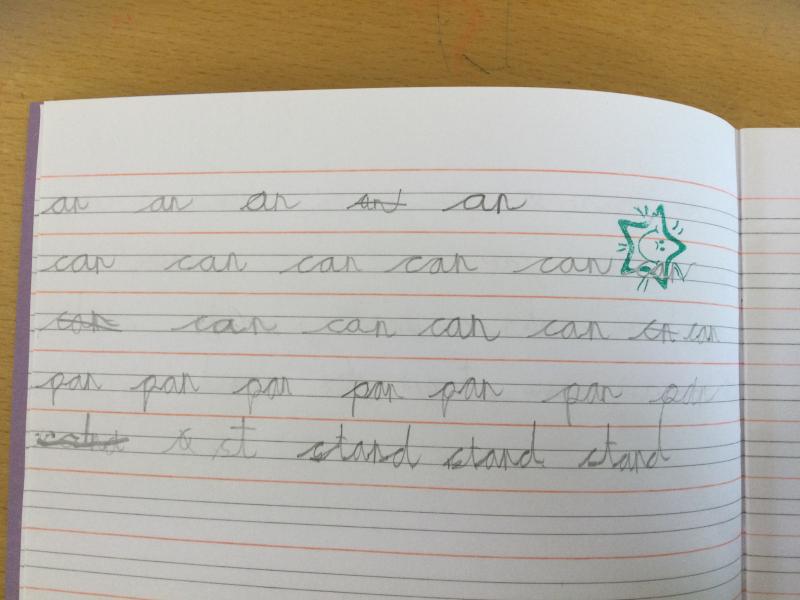 an an an an
can can can can can can
can can can can can
pan pan pan pan pan pan pan
st stand stand stand